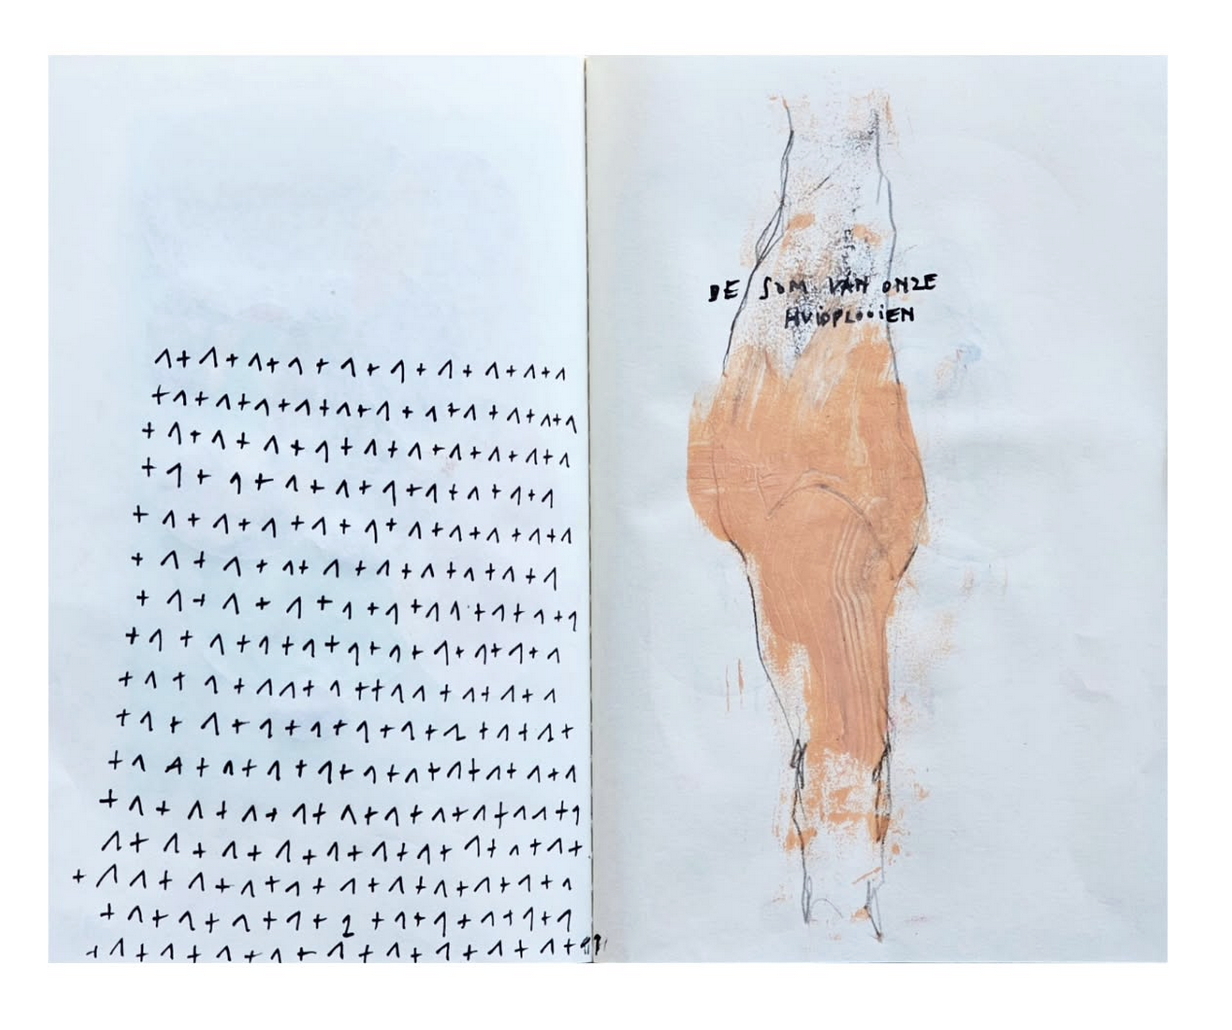 1+1+1+1+1+1+1+1+1+1
+1+1+1+1+1+1+1+1+1+1+1
+1+1+1+1+1+1+1+1+1+1+1
+1+1+1+1+1+1+1+1+1
+1+1+1+1+1+1+1+1+1+1
+1+1+1+1+1+1+1+1+1
+1+1+1+1+1+11+1+1+1
+1+1+1+1+1+1+1+1+1+1
+1+1+11+1++11+1+1+1
+1+1+1+1+1+1+1+1+1+
+1 1+1+1+1+1+1+1+1+1+1
+1+1+1+1+1+1+1+1+1+11+1
1+1+1+1+1+1+1+1+1+1+
+11+1+1+1+1+1+1+1+1+1
+1+1+1+1+2+1+1+1+1+1
+1+1+1+1+1+1+1+1+1+1+
DE SOM VAN ONZE
HUIDPLOOIEN